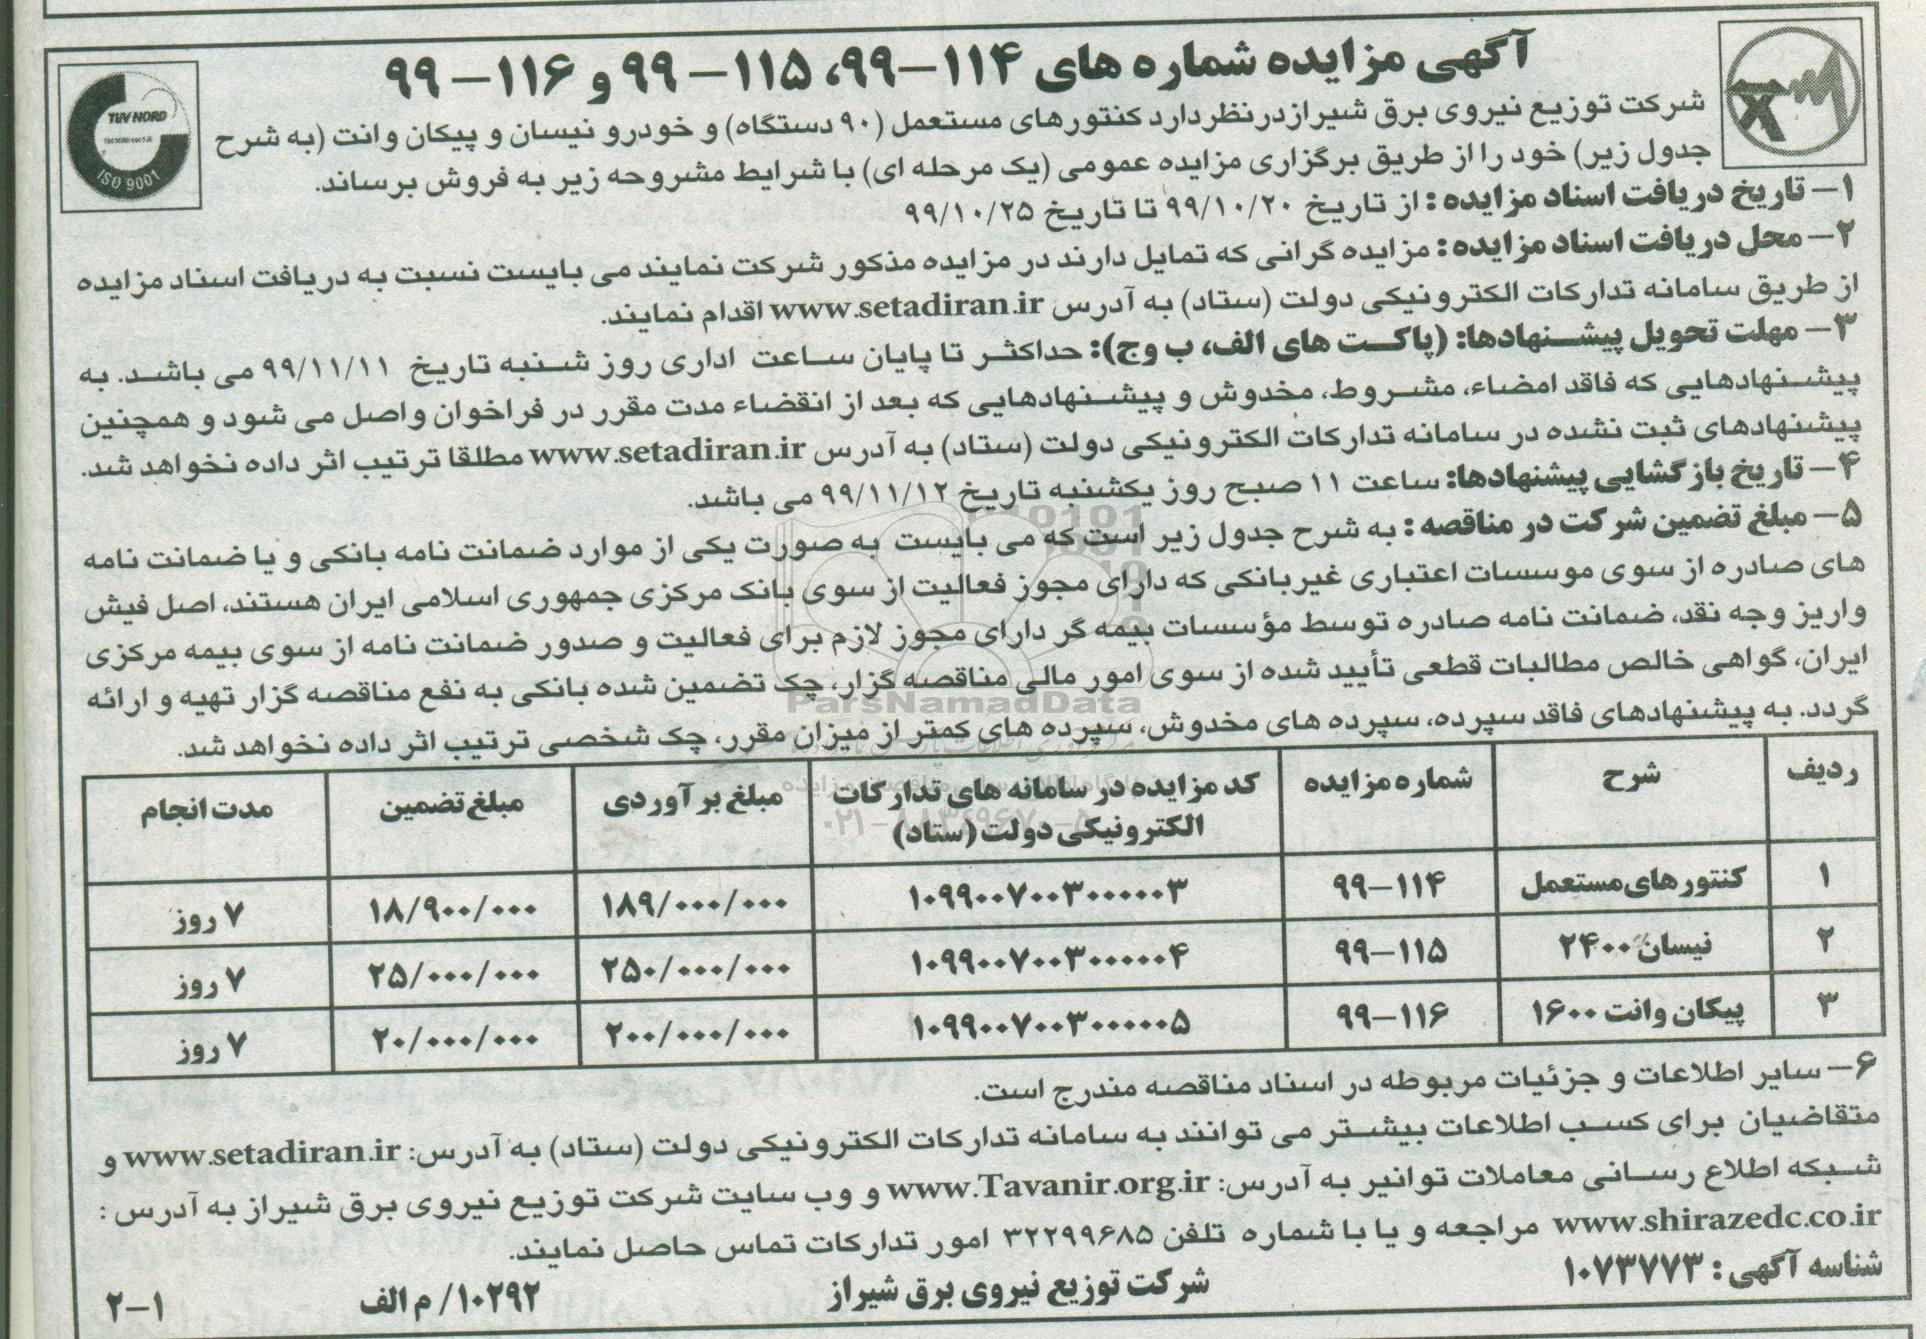 آگهی مزایده شماره های ۱۱۴-۹۹، ۱۱۵- ۹۹ و ۱۱۶- ۹۹
TÜV NORD
ISO 9001
شرکت توزیع نیروی برق شیراز درنظر دارد کنتورهای مستعمل (۹۰ دستگاه) و خودرو نیسان و پیکان وانت (به شرح
جدول زیر) خود را از طریق برگزاری مزایده عمومی (یک مرحله ای) با شرایط مشروحه زیر به فروش برساند.
۱- تاریخ دریافت اسناد مزایده : از تاریخ ۹۹/۱۰/۲۰ تا تاریخ ۹۹/۱۰/۲۵
۲- محل دریافت اسناد مزایده : مزایده گرانی که تمایل دارند در مزایده مذکور شرکت نمایند می بایست نسبت به دریافت اسناد مزایده
از طریق سامانه تدارکات الکترونیکی دولت (ستاد) به آدرس www.setadiran.ir اقدام نمایند.
۳- مهلت تحویل پیشنهادها: (پاکت های الف، ب وج): حداکثر تا پایان ساعت اداری روز شنبه تاریخ ۹۹/۱۱/۱۱ می باشد. به
پیشنهادهایی که فاقد امضاء، مشروط، مخدوش و پیشنهادهایی که بعد از انقضاء مدت مقرر در فراخوان واصل می شود و همچنین
پیشنهادهای ثبت نشده در سامانه تدارکات الکترونیکی دولت (ستاد) به آدرس www.setadiran.ir مطلقا ترتیب اثر داده نخواهد شد.
۴- تاریخ بازگشایی پیشنهادها: ساعت ۱۱ صبح روز یکشنبه تاریخ ۹۹/۱۱/۱۲ می باشد.
۵- مبلغ تضمین شرکت در مناقصه : به شرح جدول زیر است که می بایست به صورت یکی از موارد ضمانت نامه بانکی و یا ضمانت نامه
های صادره از سوی موسسات اعتباری غیربانکی که دارای مجوز فعالیت از سوی بانک مرکزی جمهوری اسلامی ایران هستند، اصل فیش
واریز وجه نقد، ضمانت نامه صادره توسط مؤسسات بیمه گر دارای مجوز لازم برای فعالیت و صدور ضمانت نامه از سوی بیمه مرکزی
ایران، گواهی خالص مطالبات قطعی تأیید شده از سوی امور مالی مناقصه گزار، چک تضمین شده بانکی به نفع مناقصه گزار تهیه و ارائه
گردد. به پیشنهادهای فاقد سپرده، سپرده های مخدوش، سپرده های کمتر از میزان مقرر، چک شخصی ترتیب اثر داده نخواهد شد.
ParsNamadData
ردیف شرح شماره مزایده کد مزایده در سامانه های تدارکات الکترونیکی دولت (ستاد) مبلغ برآوردی مبلغ تضمین مدت انجام
۱ کنتورهای مستعمل ۹۹-۱۱۴ ۱۰۹۹۰۰۷۰۰۳۰۰۰۰۰۳ ۱۸۹/۰۰۰/۰۰۰ ۱۸/۹۰۰/۰۰۰ ۷ روز
۲ نیسان ۲۴۰۰ ۹۹-۱۱۵ ۱۰۹۹۰۰۷۰۰۳۰۰۰۰۰۴ ۲۵۰/۰۰۰/۰۰۰ ۲۵/۰۰۰/۰۰۰ ۷ روز
۳ پیکان وانت ۱۶۰۰ ۹۹-۱۱۶ ۱۰۹۹۰۰۷۰۰۳۰۰۰۰۰۵ ۲۰۰/۰۰۰/۰۰۰ ۲۰/۰۰۰/۰۰۰ ۷ روز
۶- سایر اطلاعات و جزئیات مربوطه در اسناد مناقصه مندرج است.
متقاضیان برای کسب اطلاعات بیشتر می توانند به سامانه تدارکات الکترونیکی دولت (ستاد) به آدرس: www.setadiran.ir و
شبکه اطلاع رسانی معاملات توانیر به آدرس: www.Tavanir.org.ir و وب سایت شرکت توزیع نیروی برق شیراز به آدرس :
www.shirazedc.co.ir مراجعه و یا با شماره تلفن ۳۲۲۹۹۶۸۵ امور تدارکات تماس حاصل نمایند.
شناسه آگهی : ۱۰۷۳۷۷۳
شرکت توزیع نیروی برق شیراز
۱۰۲۹۲/ م الف
۲-۱